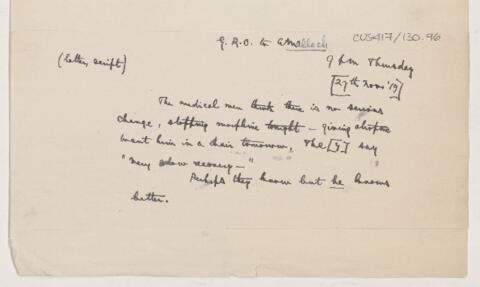 G. R. O. to A Mallach CUS417/130.96
(letter, script)
9 p.m. Thursday
[27th Novr '19]
The medical men think there is no serious
change, stopping morphine tonight — giving
want him in a chair tomorrow, The [y] say
"very slow recovery — "
Perhaps they know but he knows
better.